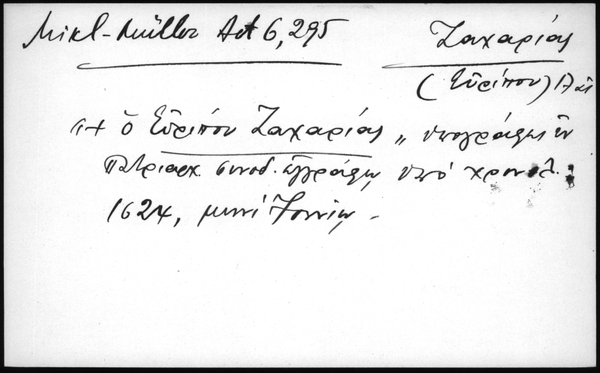 Mikl-Müller Act 6, 295 Ζαχαρίας
(Εὐρίπου) 17 αἰ
"+ ὁ Εὐρίπου Ζαχαρίας" ὑπογράφων ἐν
πατριαρχ. συνοδ. ἐγγράφῳ ὑπό χρονολ.
1624, μηνί Ἰουνίῳ.